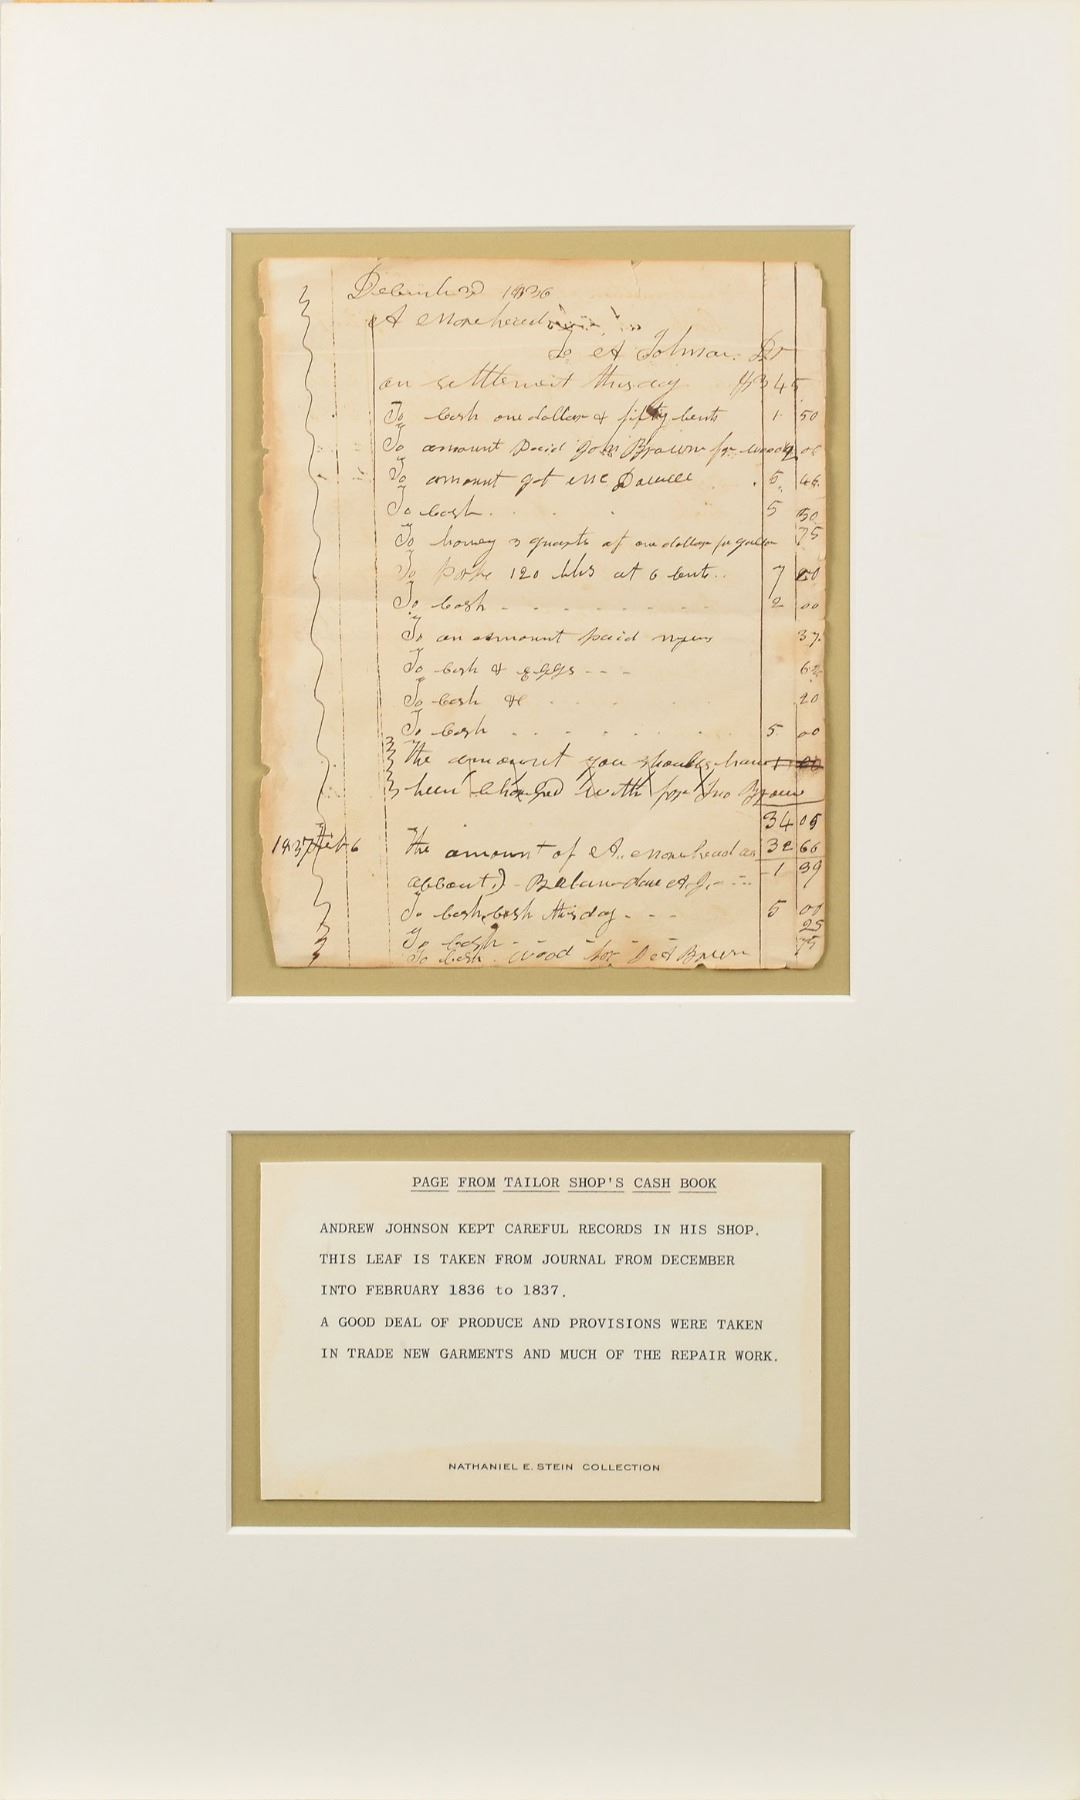 December 1836
A Morehead
To A Johnson. Dr
on settlement this day $3 45
To Cash one dollar & fifty Cents 1. 50
To amount paid John Brown for wood
To amount got me 5. 46
To Cash . . . 5 50
To honey 3 quarts at one dollar per gallon 75
To Pork 120 lbs at 6 Cents.. 7 20
To Cash - - - - - - - - 2 00
To an amount paid 37
To Cash & Eggs - - - 62
To Cash & . . . . 20
To Cash . . . . . . 5. 00
The amount you should have 1 00
been Charged with for Jno Brown
34 05
1837 Feb 6 The amount of A. Morehead ac 32 66
account.) - Balance due A J. - - 1 39
To Cash, Cash this day - - - 5 00
To Cash - - - - - 25
To Cash. wood for Brown 75
PAGE FROM TAILOR SHOP'S CASH BOOK
ANDREW JOHNSON KEPT CAREFUL RECORDS IN HIS SHOP.
THIS LEAF IS TAKEN FROM JOURNAL FROM DECEMBER
INTO FEBRUARY 1836 to 1837.
A GOOD DEAL OF PRODUCE AND PROVISIONS WERE TAKEN
IN TRADE NEW GARMENTS AND MUCH OF THE REPAIR WORK.
NATHANIEL E. STEIN COLLECTION